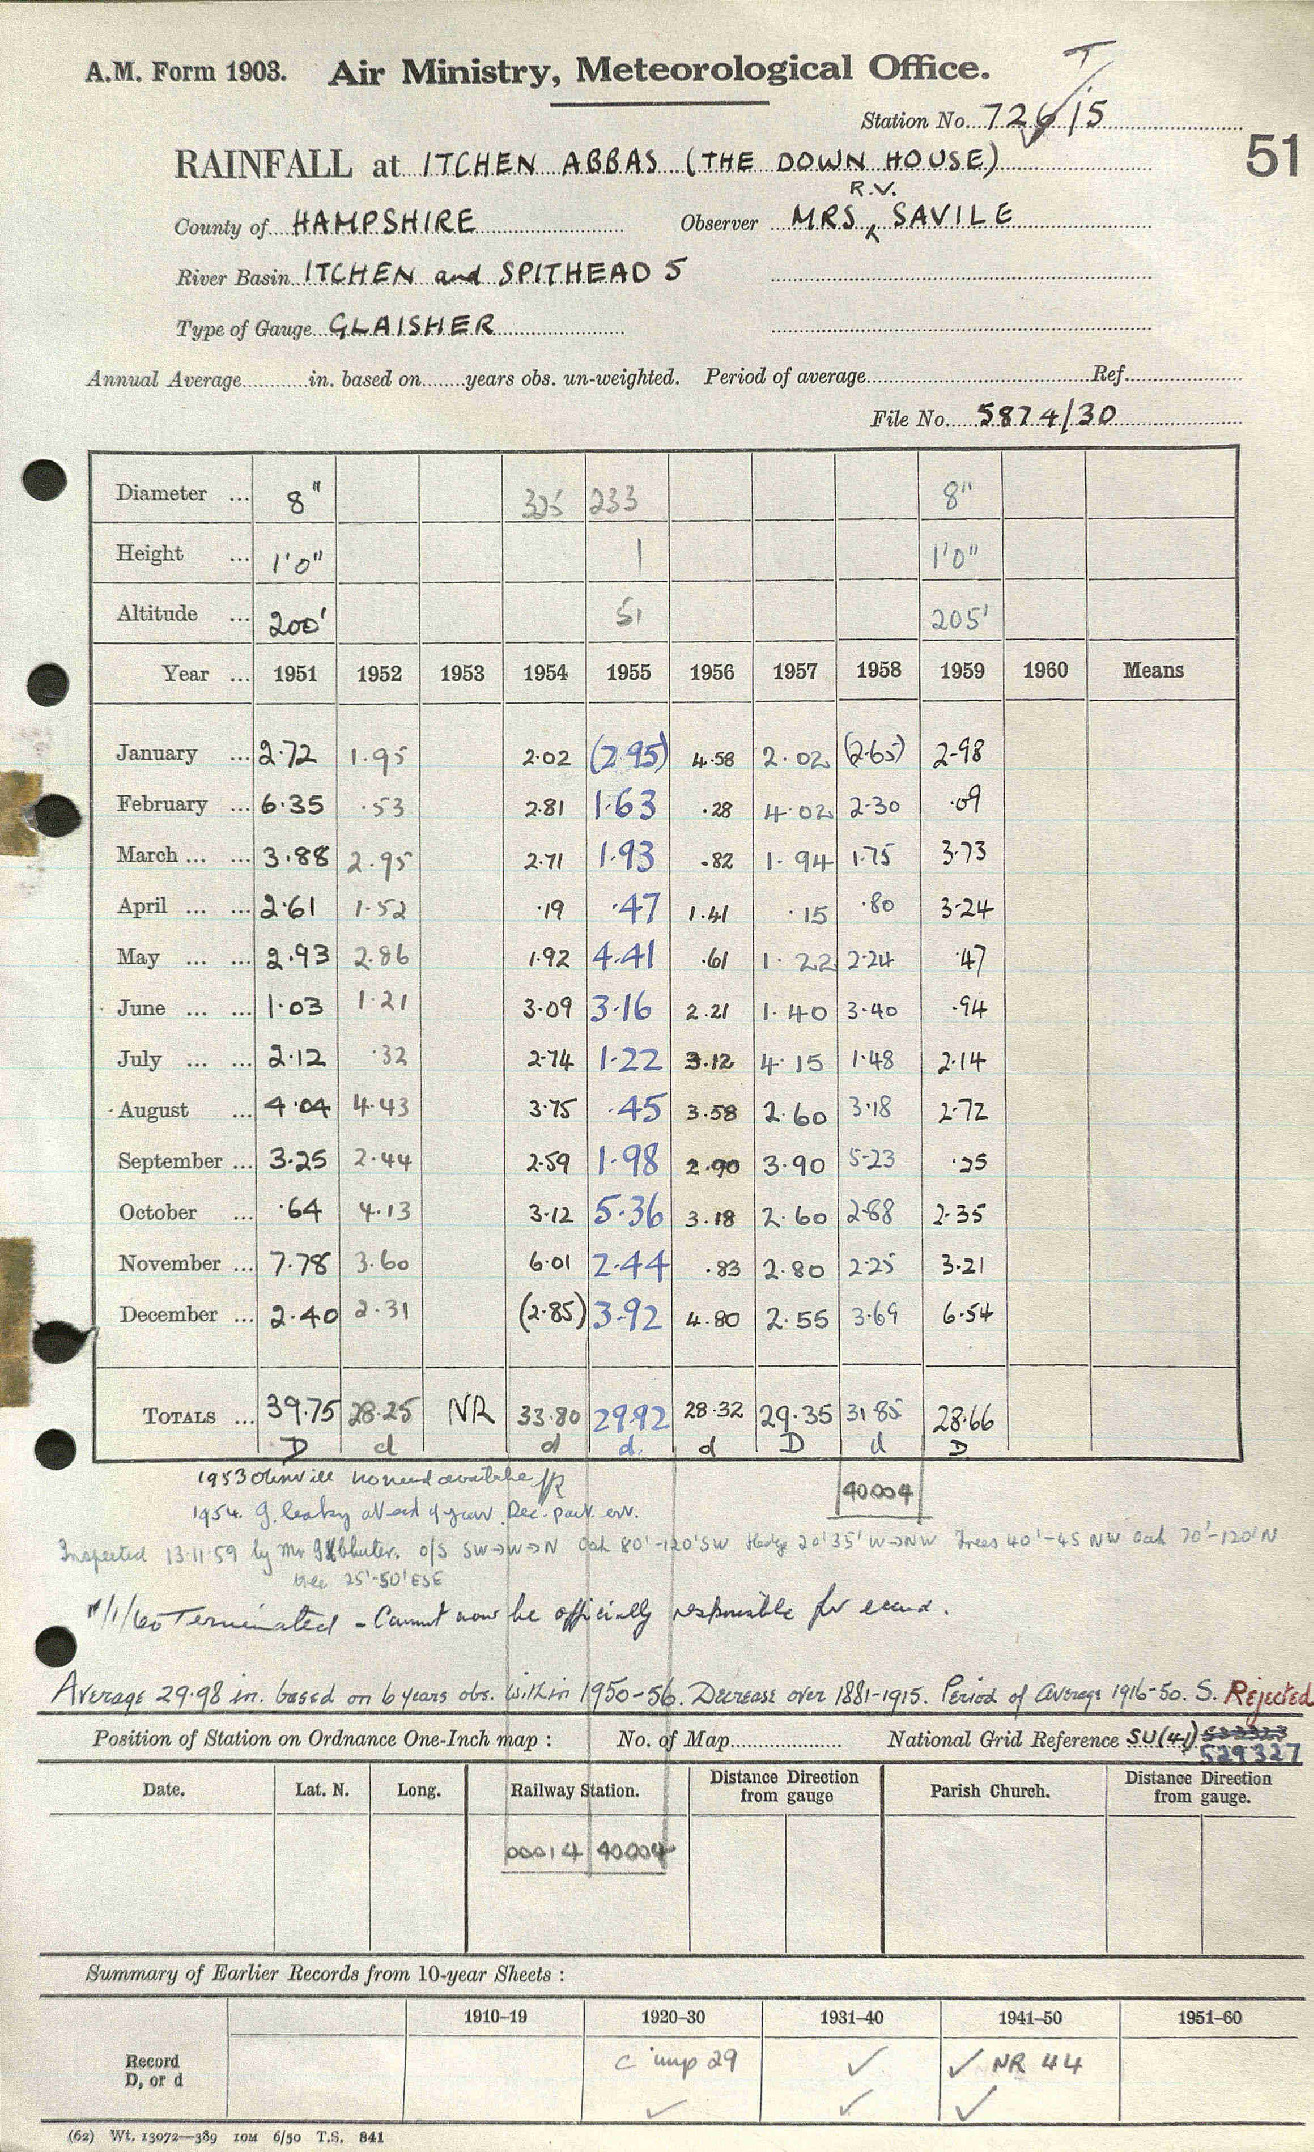 A.M. Form 1903. Air Ministry, Meteorological Office.
T
Station No. 726/5
51
RAINFALL at ITCHEN ABBAS (THE DOWN HOUSE)
R.V.
County of HAMPSHIRE Observer MRS SAVILE
River Basin ITCHEN and SPITHEAD 5
Type of Gauge GLAISHER
Annual Average in. based on years obs. un-weighted. Period of average Ref.
File No. 5874/30
Diameter ... 8" 325 233 8"
Height ... 1'0" 1 1'0"
Altitude ... 200' 51 205'
Year ... 1951 1952 1953 1954 1955 1956 1957 1958 1959 1960 Means
January ... 2.72 1.95 2.02 (2.95) 4.58 2.02 (2.65) 2.98
February ... 6.35 .53 2.81 1.63 .28 4.02 2.30 .09
March ... ... 3.88 2.95 2.71 1.93 .82 1.94 1.75 3.73
April ... ... 2.61 1.52 .19 .47 1.41 .15 .80 3.24
May ... ... 2.93 2.86 1.92 4.41 .61 1.22 2.24 .47
June ... ... 1.03 1.21 3.09 3.16 2.21 1.40 3.40 .94
July ... ... 2.12 .32 2.74 1.22 3.12 4.15 1.48 2.14
August ... 4.04 4.43 3.75 .45 3.58 2.60 3.18 2.72
September ... 3.25 2.44 2.59 1.98 2.90 3.90 5.23 .25
October ... .64 4.13 3.12 5.36 3.18 2.60 2.88 2.35
November ... 7.78 3.60 6.01 2.44 .83 2.80 2.25 3.21
December ... 2.40 2.31 (2.85) 3.92 4.80 2.55 3.69 6.54
TOTALS ... 39.75 28.25 NR 33.80 29.92 28.32 29.35 31.85 28.66
D d d d. d D d D
1953 no record available
40004
1954. g. leaky at end of year. Dec. part est.
Inspected 13.11.59 by Mr o/s SW→W→N Oak 80'-120' SW Hedge 20' 35' W→NW Trees 40'-45 NW Oak 70'-120' N
tree 25'-50' ESE
1/1/60 Terminated - Cannot now be officially responsible for record.
Average 29.98 in. based on 6 years obs. within 1950-56. Decrease over 1881-1915. Period of average 1916-50. S. Rejected
Position of Station on Ordnance One-Inch map : No. of Map National Grid Reference SU(41)
529327
Date. Lat. N. Long. Railway Station. Distance Direction from gauge Parish Church. Distance Direction from gauge.
00014 40004
Summary of Earlier Records from 10-year Sheets :
1910-19 1920-30 1931-40 1941-50 1951-60
Record D, or d c imp 29 ✓ ✓ NR 44
✓ ✓ ✓
(62) Wt. 13072—389 10M 6/50 T.S. 841